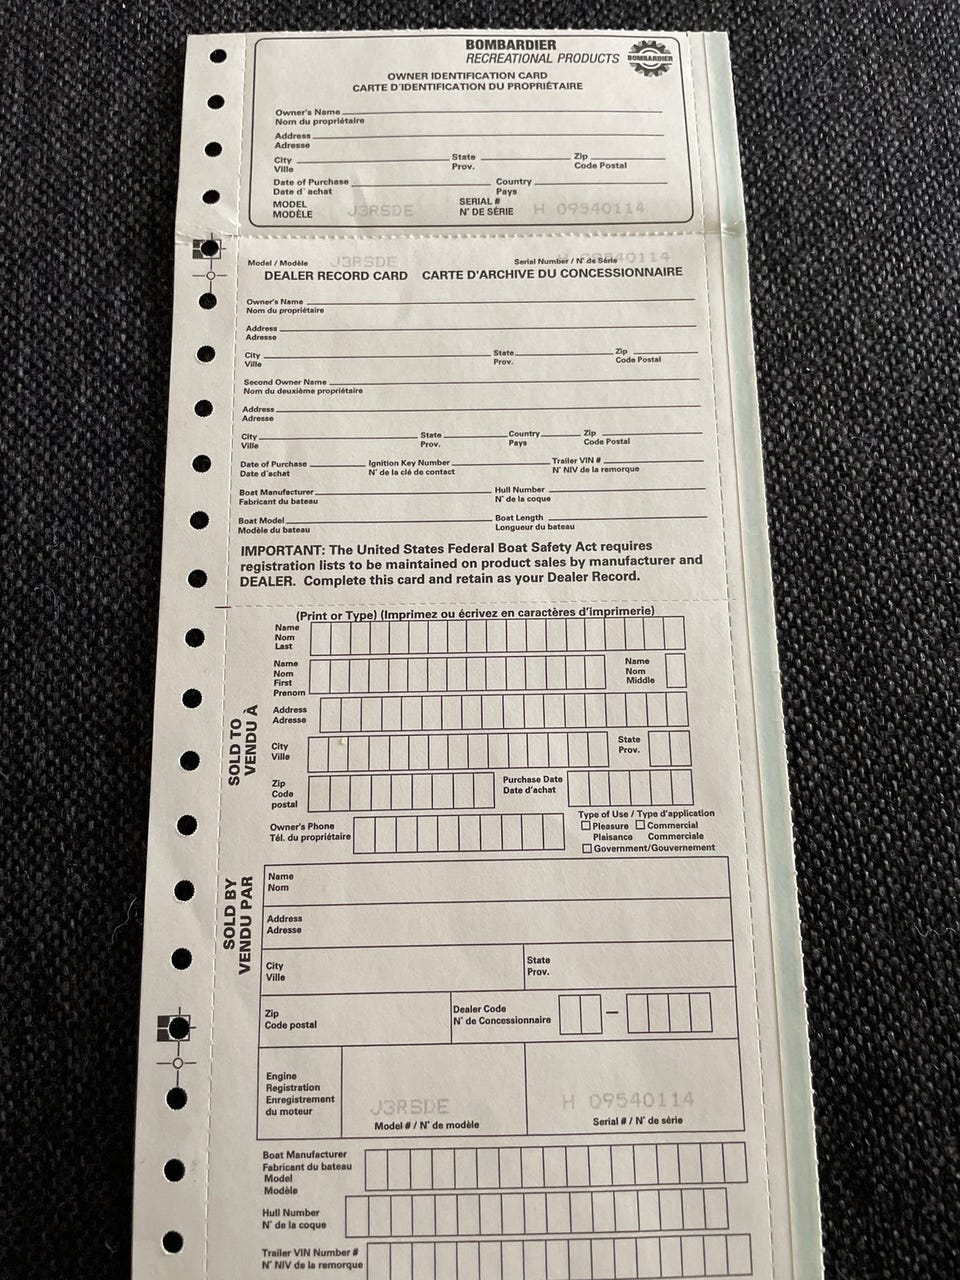 BOMBARDIER
RECREATIONAL PRODUCTS
BOMBARDIER
OWNER IDENTIFICATION CARD
CARTE D'IDENTIFICATION DU PROPRIÉTAIRE
Owner's Name
Nom du propriétaire
Address
Adresse
City State Zip
Ville Prov. Code Postal
Date of Purchase Country
Date d'achat Pays
MODEL SERIAL #
MODÈLE J3RSDE N° DE SÉRIE H 09540114
Model / Modèle J3RSDE Serial Number / N° de Série H 09540114
DEALER RECORD CARD CARTE D'ARCHIVE DU CONCESSIONNAIRE
Owner's Name
Nom du propriétaire
Address
Adresse
City State Zip
Ville Prov. Code Postal
Second Owner Name
Nom du deuxième propriétaire
Address
Adresse
City State Country Zip
Ville Prov. Pays Code Postal
Date of Purchase Ignition Key Number Trailer VIN #
Date d'achat N° de la clé de contact N° NIV de la remorque
Boat Manufacturer Hull Number
Fabricant du bateau N° de la coque
Boat Model Boat Length
Modèle du bateau Longueur du bateau
IMPORTANT: The United States Federal Boat Safety Act requires
registration lists to be maintained on product sales by manufacturer and
DEALER. Complete this card and retain as your Dealer Record.
(Print or Type) (Imprimez ou écrivez en caractères d'imprimerie)
SOLD TO
VENDU À
Name
Nom
Last
Name Name
Nom Nom
First Middle
Prenom
Address
Adresse
City State
Ville Prov.
Zip Purchase Date
Code Date d'achat
postal
Owner's Phone
Tél. du propriétaire
Type of Use / Type d'application
Pleasure Commercial
Plaisance Commerciale
Government/Gouvernement
SOLD BY
VENDU PAR
Name
Nom
Address
Adresse
City State
Ville Prov.
Zip Dealer Code
Code postal N° de Concessionnaire –
Engine
Registration
Enregistrement
du moteur
J3RSDE H 09540114
Model # / N° de modèle Serial # / N° de série
Boat Manufacturer
Fabricant du bateau
Model
Modèle
Hull Number
N° de la coque
Trailer VIN Number #
N° NIV de la remorque